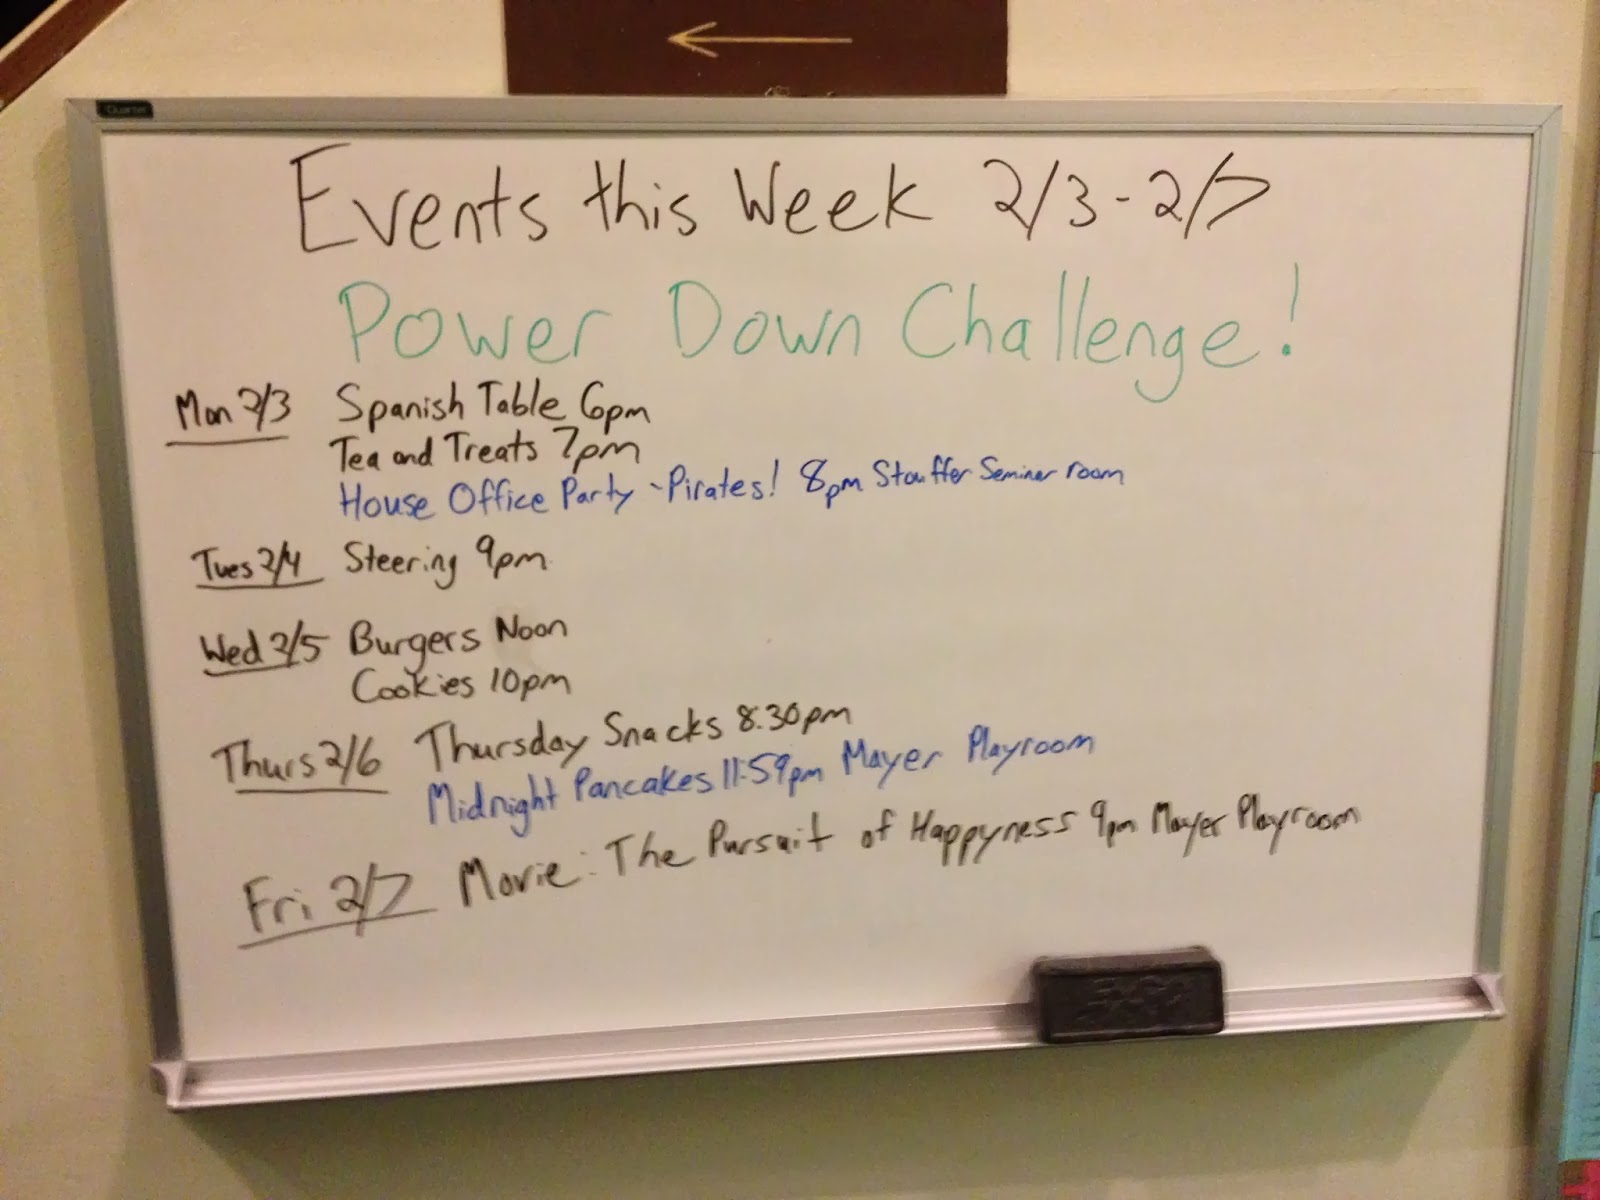 Quartet
Events this Week 2/3-2/7
Power Down Challenge!
Mon 2/3 Spanish Table 6pm
Tea and Treats 7pm
House Office Party - Pirates! 8pm Stouffer Seminar room
Tues 2/4 Steering 9pm
Wed 2/5 Burgers Noon
Cookies 10pm
Thurs 2/6 Thursday Snacks 8:30pm
Midnight Pancakes 11:59pm Mayer Playroom
Fri 2/7 Movie: The Pursuit of Happyness 9pm Mayer Playroom
EXPO